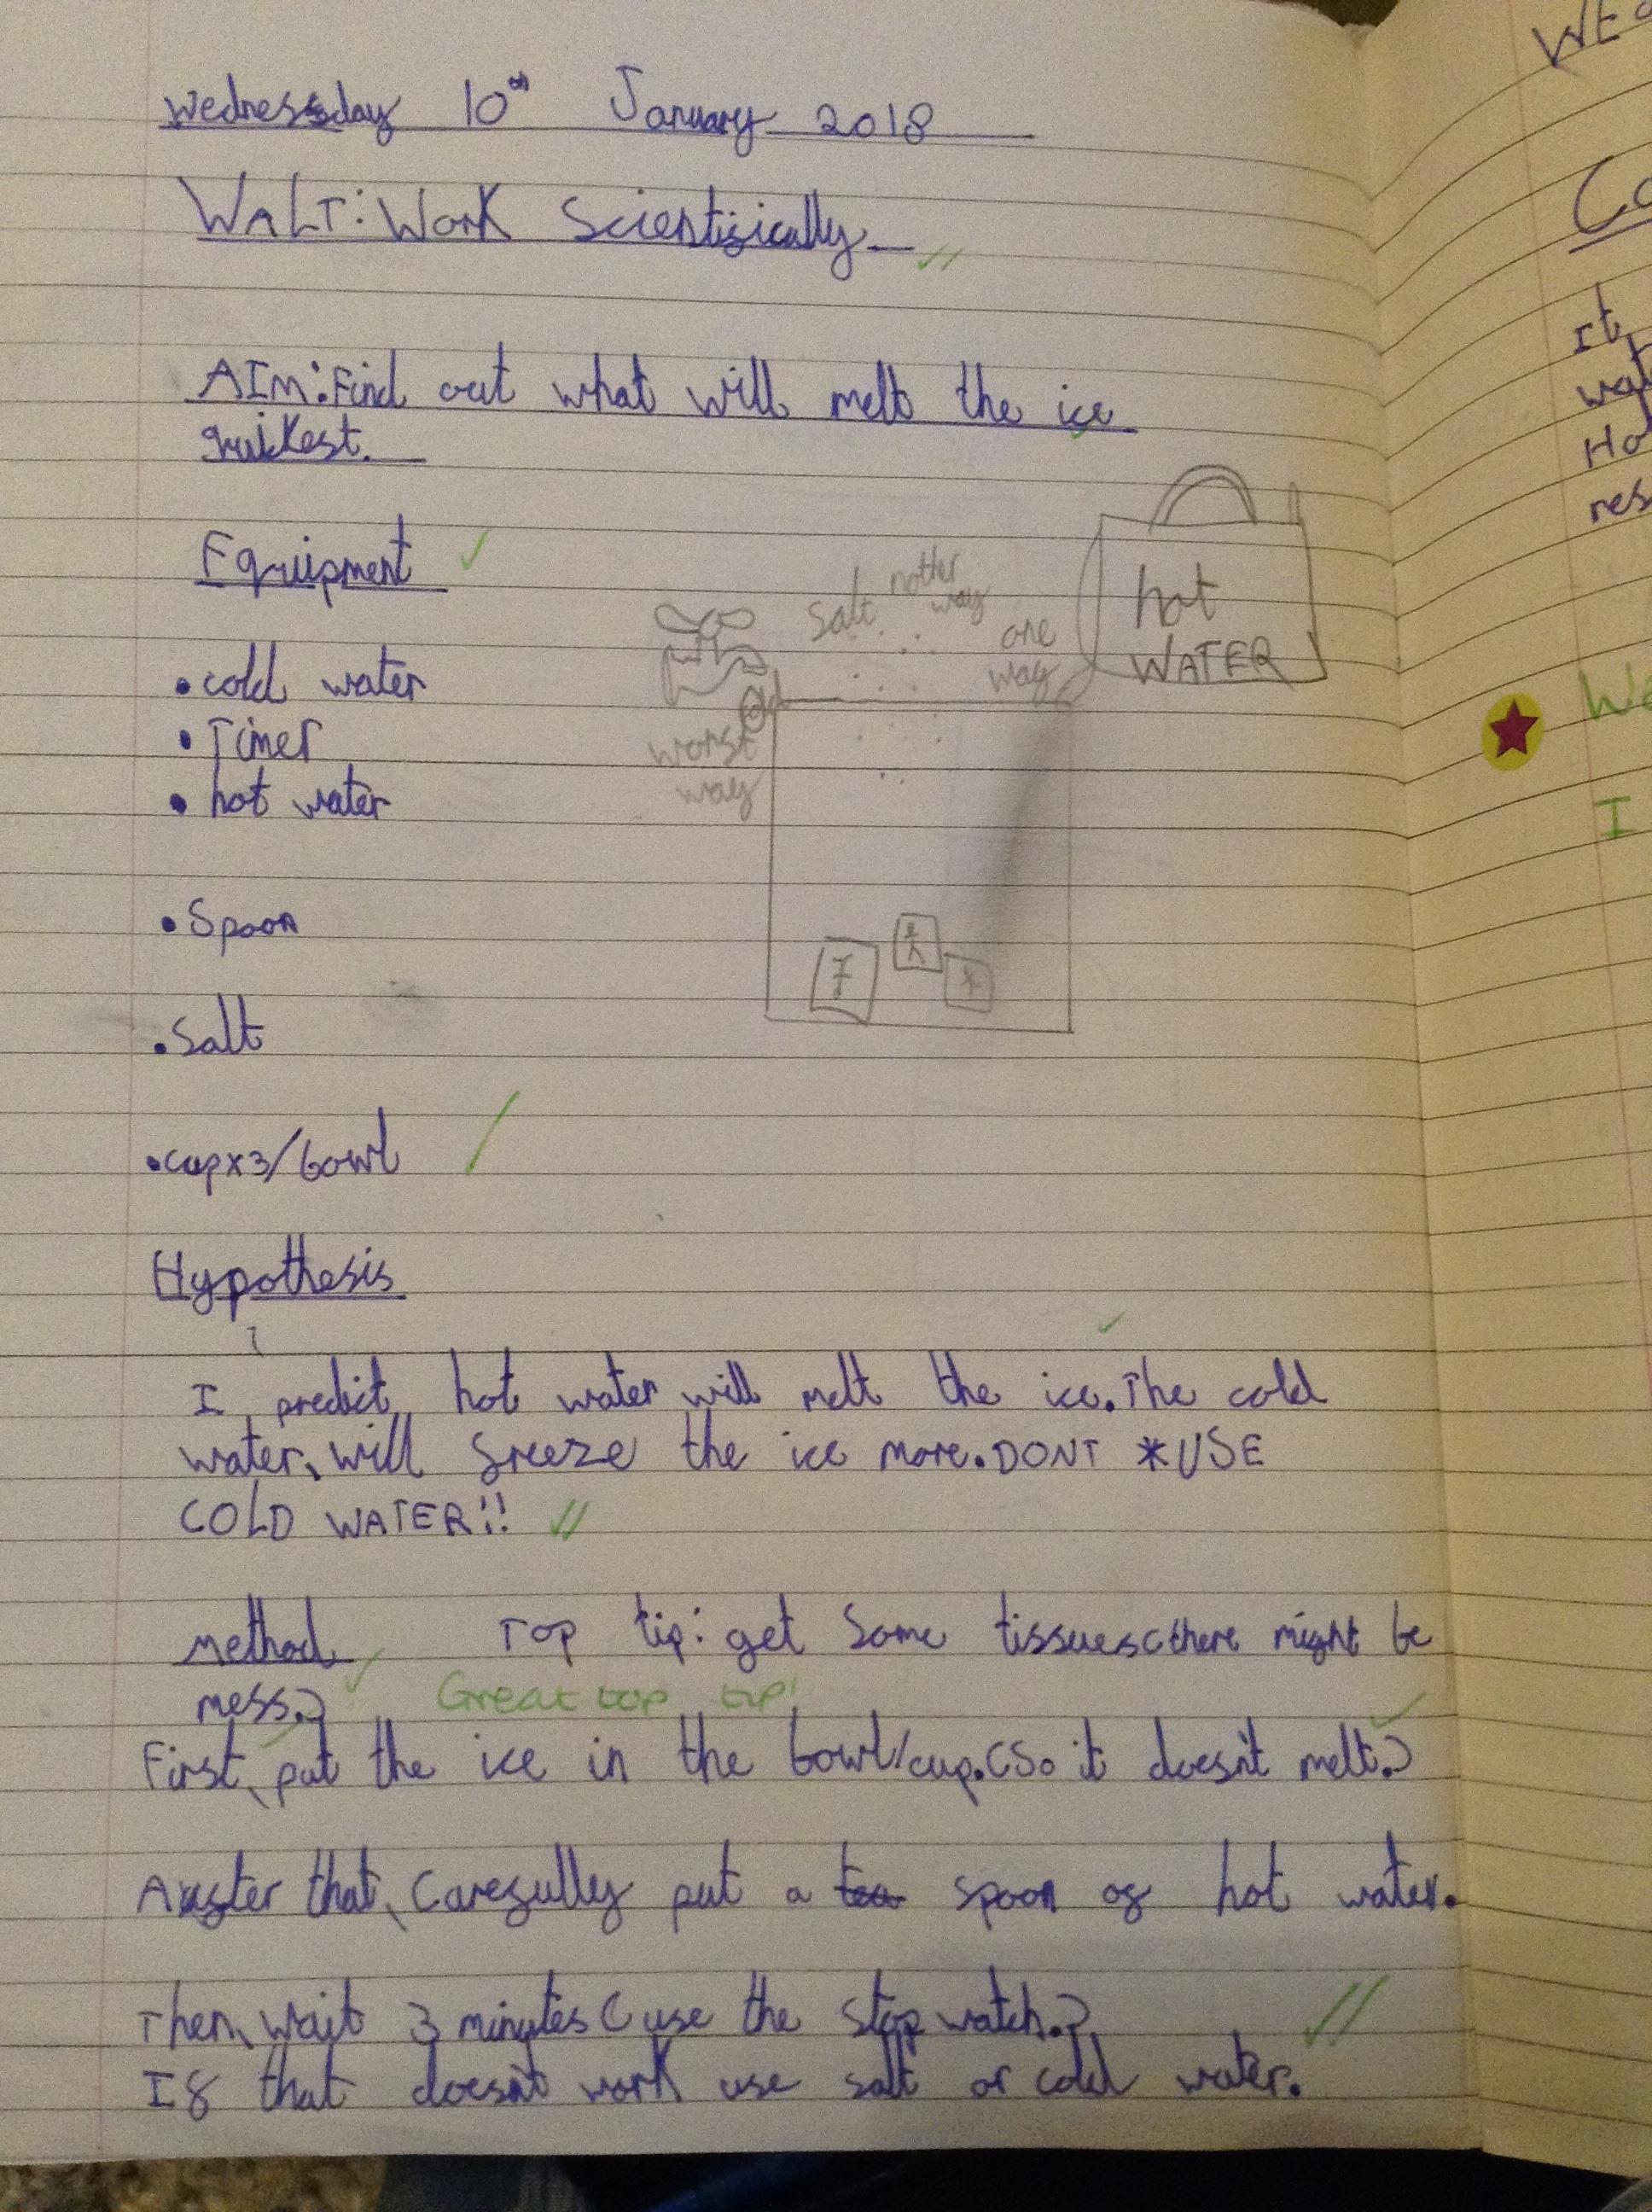 Wednesday 10th January 2018
WALT: Work Scientifically
AIM: Find out what will melt the ice
quikest.
Equipment
• cold water
• Timer
• hot water
• Spoon
• Salt
• cupx3/bowl
salt nother
way
one
way
hot
WATER
worst
way
Hypothesis
I predict, hot water will melt the ice. The cold
water, will freeze the ice more. DONT *USE
COLD WATER!!
Method Top tip: get some tissues (there might be
mess.)
Great top tip!
First, put the ice in the bowl/cup. (So it doesn't melt.)
After that, Carefully put a tea spoon of hot water.
Then, wait 3 minutes (use the stop watch.)
If that doesn't work use salt or cold water.
Co
It
wat
Ho
res
We
I